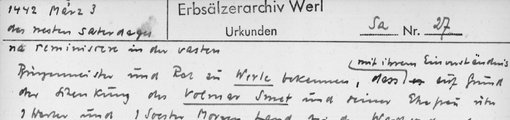 1442 März 3
Erbsälzerarchiv Werl
des nesten saterdages
Urkunden
Sa Nr. 27
na reminiscere in der vasten
mit ihrem Einverständnis
Bürgermeister und Rat zu Werle bekennen, dass auf Grund
der Schenkung des Volmar Smet und seiner Ehefrau
und Soester Morgen Land